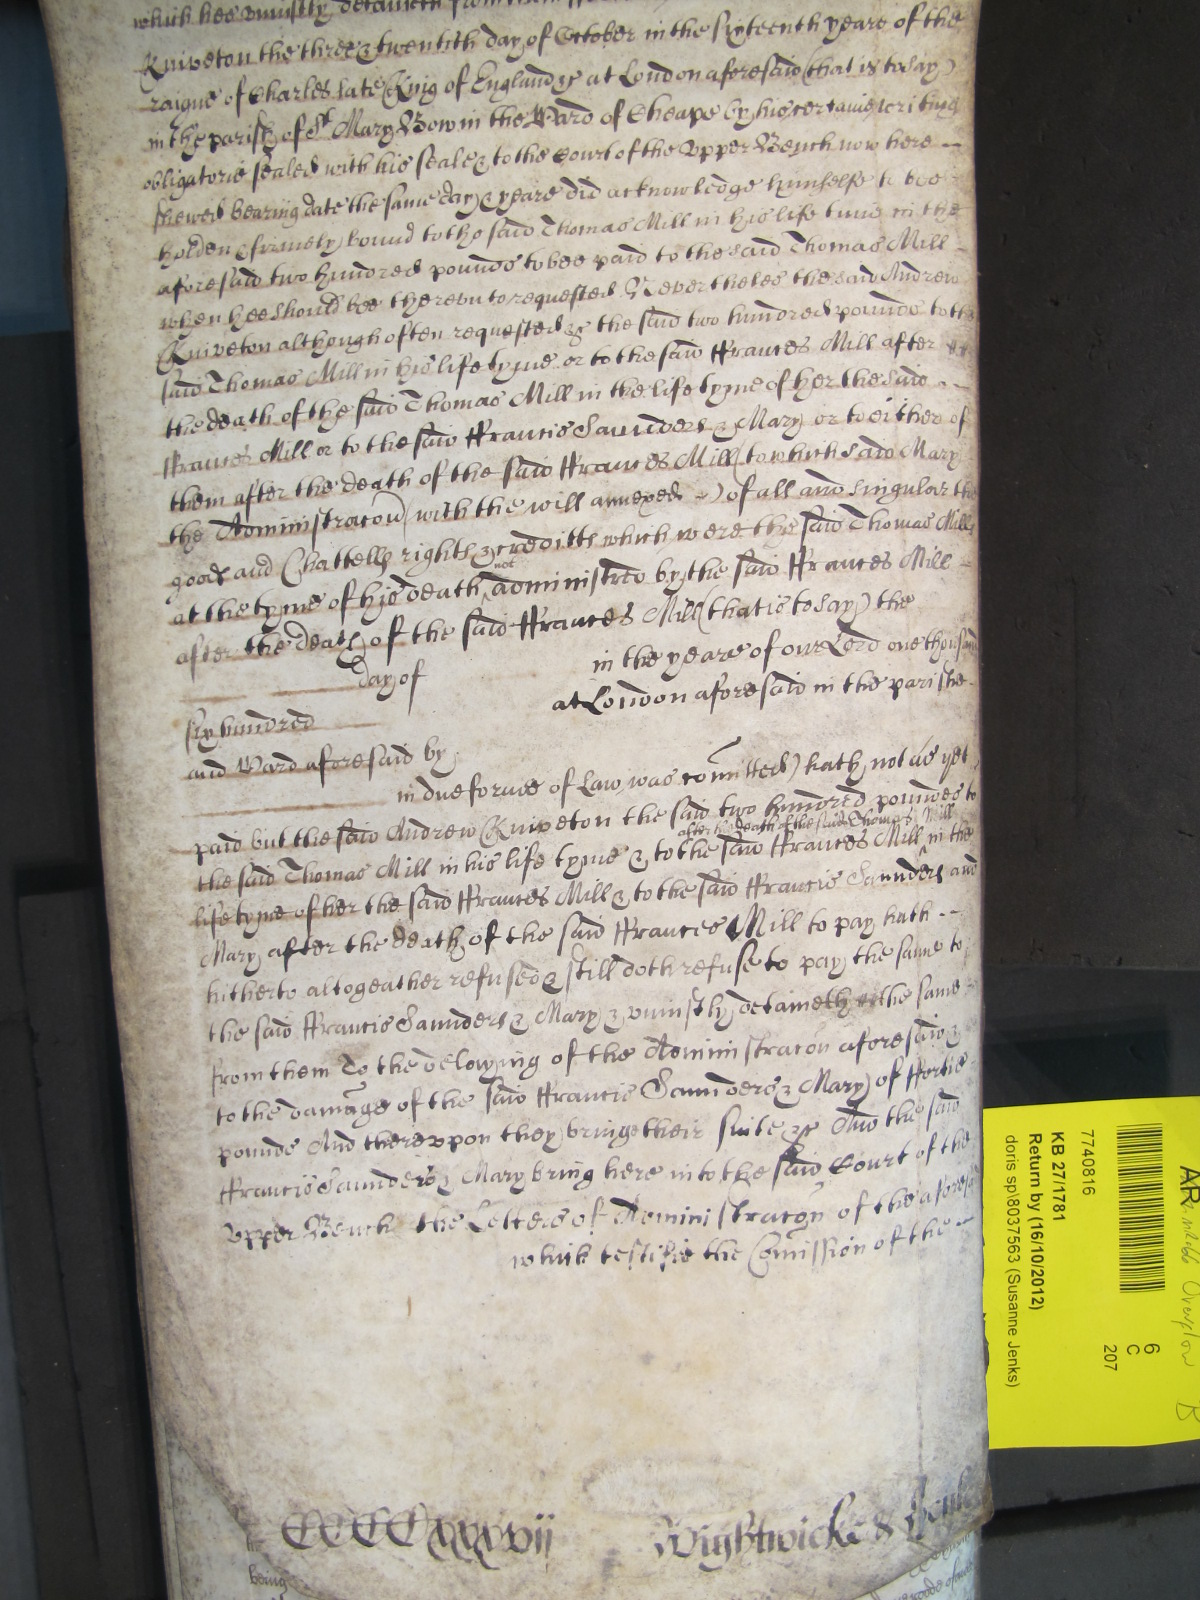 which hee uniustly detaineth from them
Kniveton the three & twentith day of October in the sixteenth yeare of the
raigne of Charles late King of England &c at London aforesaid (that is to say)
in the parish of St Mary Bow in the Ward of Cheape by his certaine writing
obligatorie sealed with his seale & to the Court of the Upper Bench now here
shewed bearing date the same day & yeare did acknowledge himselfe to bee
holden & firmely bound to the said Thomas Mill in his life time in the
aforesaid two hundred pounds to bee paid to the said Thomas Mill
when hee should bee thereunto requested Neverthelesse the said Andrew
Kniveton although often requested &c the said two hundred pounds to the
said Thomas Mill in his life tyme or to the said Frances Mill after
the death of the said Thomas Mill in the life tyme of her the said
Frances Mill or to the said Francis Saunders & Mary or to either of
them after the death of the said Frances Mill (to which said Mary
the Administracon (with the will annexed) of all and singular the
goods and Chattells rights & creditts which were the said Thomas Mills
at the tyme of his death not administred by the said Frances Mill
after the death of the said Frances Mill (that is to say) the
day of in the yeare of our Lord one thousand
six hundred at London aforesaid in the parishe
and Ward aforesaid by
in due forme of Law was comitted) hath not as yet
paid but the said Andrew Kniveton the said two hundred poundes to
after the death of the said Thomas Mill
the said Thomas Mill in his life tyme & to the said Frances Mill in the
life tyme of her the said Frances Mill & to the said Francis Saunders and
Mary after the death of the said Frances Mill to pay hath
hitherto altogeather refused & still doth refuse to pay the same to
the said Francis Saunders & Mary & uniustly detaineth the same
from them To the delaying of the Administracon aforesaid &
to the damage of the said Francis Saunders & Mary of Fortie
pounds And thereupon they bringe their suite &c And the said
Francis Saunders & Mary bring here into the said Court of the
Upper Bench the Letters of Administracon of the aforesaid
which testifie the Comission of the
CCCCxxxvii Wightwicke &
being
7740816
KB 27/1781
Return by (16/10/2012)
doris sp\8037563 (Susanne Jenks)
6
C
207
AR
Overflow
B